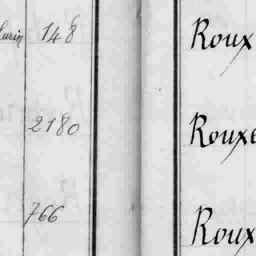 148 Roux
2180 Rouxe
766 Roux